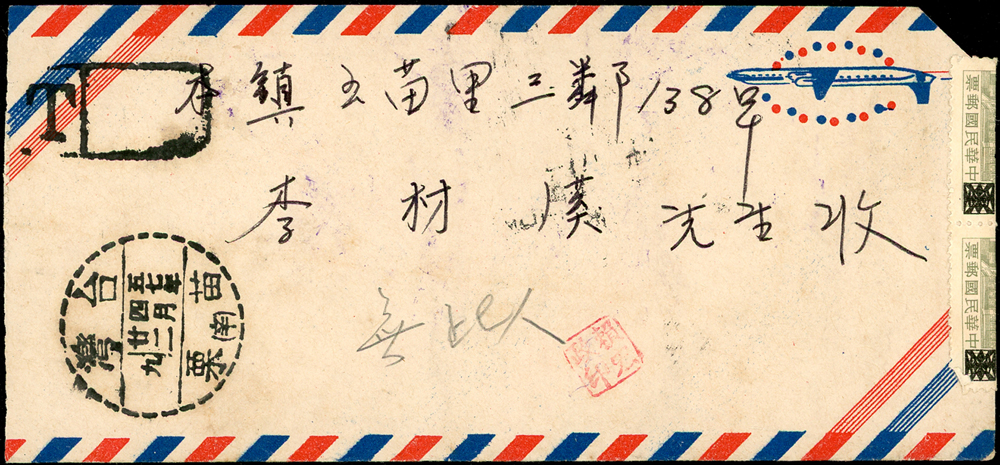 本鎮玉苗里三鄰138号
李材漢先生收
無此人
T
台灣
苗栗
南
五七年
四月
廿二
九
中華民國郵票
中華民國郵票